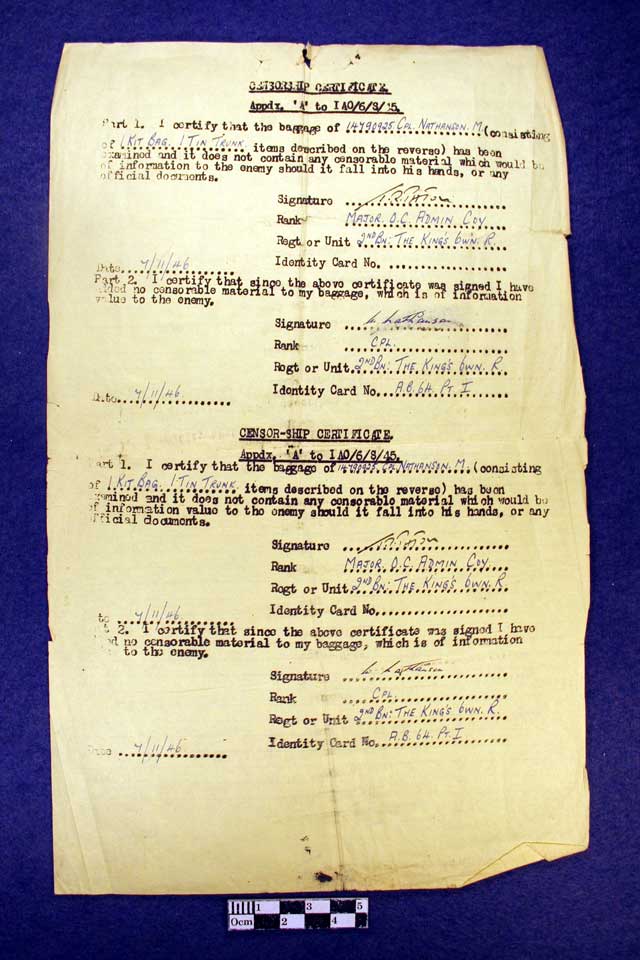 CENSORSHIP CERTIFICATE.
Appdx. 'A' to IAO/6/3/45.
Part 1. I certify that the baggage of 14790925. CPL. NATHANSON. M. (consisting
of 1 KIT BAG. 1 TIN TRUNK. items described on the reverse) has been
examined and it does not contain any censorable material which would be
of information to the enemy should it fall into his hands, or any
official documents.
Signature
Rank MAJOR. O.C. ADMIN. COY.
Regt or Unit 2ND BN: THE KING'S OWN. R.
Date. 7/11/46 Identity Card No.
Part 2. I certify that since the above certificate was signed I have
added no censorable material to my baggage, which is of information
value to the enemy.
Signature Nathanson
Rank CPL.
Regt or Unit 2ND BN: THE KING'S OWN. R.
Date. 7/11/46 Identity Card No. A.B. 64. PT. I
CENSOR-SHIP CERTIFICATE.
Appdx. 'A' to IAO/6/3/45.
Part 1. I certify that the baggage of 14790925. CPL. NATHANSON. M. (consisting
of 1 KIT BAG. 1 TIN TRUNK. items described on the reverse) has been
examined and it does not contain any censorable material which would be
of information value to the enemy should it fall into his hands, or any
official documents.
Signature
Rank MAJOR. O.C. ADMIN. COY.
Regt or Unit 2ND BN: THE KING'S OWN. R.
Identity Card No.
te 7/11/46
t 2. I certify that since the above certificate was signed I have
ed no censorable material to my baggage, which is of information
to the enemy.
Signature Nathanson
Rank CPL.
Regt or Unit 2ND BN: THE KING'S OWN. R.
Date 7/11/46 Identity Card No. A.B. 64. PT. I
1 3 5
0cm 2 4